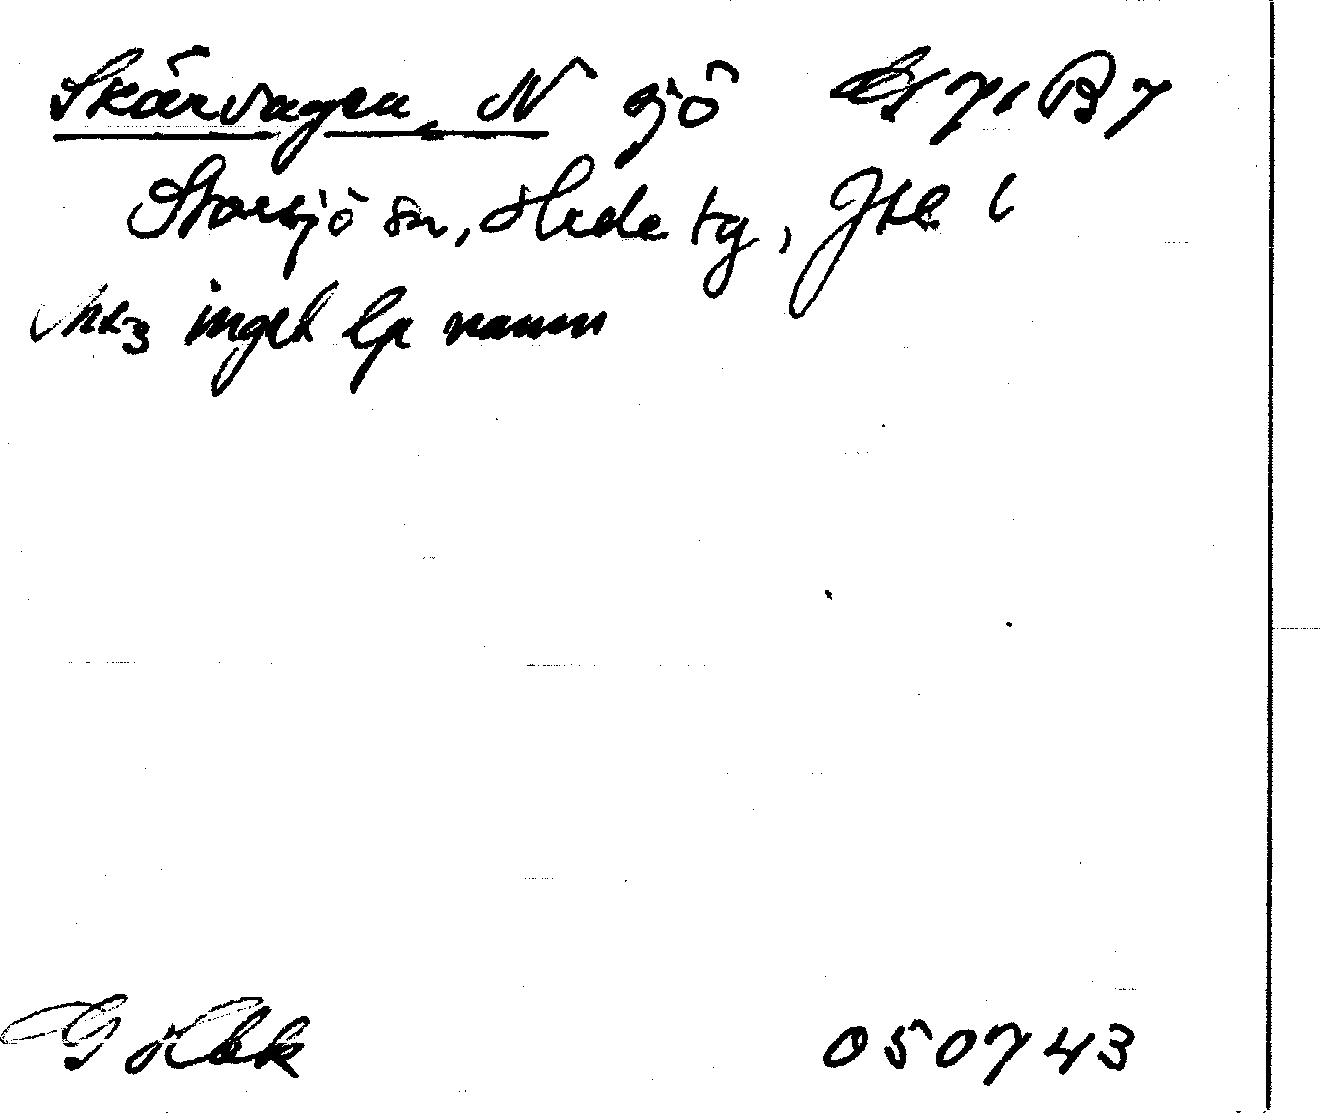 Skärvagen, N sjö G 71 B 7
Storsjö sn, Hede tg, Jtl l
Mk3 inget lp namn
G Hbk 050743